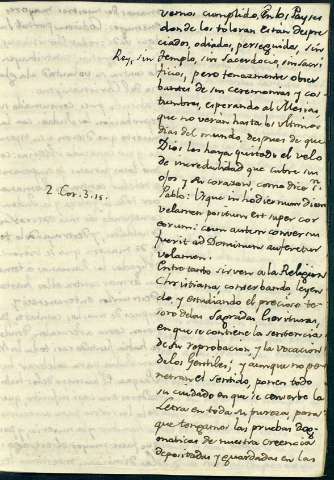 vemos cumplido. En los Payses
donde los toleran estan despre
ciados, odiados, perseguidos, sin
Rey, sin templo, sin sacerdocio, sin sacri
ficios, pero tenazmente obser
bantes de sus ceremonias y cos
tumbres, esperando al Mesias,
que no verán hasta los ultimos
dias del mundo, despues de que
Dios les haya quitado el velo
de incredulidad que cubre sus
ojos y su corazon, como dice Sn.
2. Cor. 3. 15.
Pablo: Usque in hodiernum diem
velamen positum est super cor
eorum: cum autem conversus
fuerit ad Dominum auferetur
velamen.
Entretanto sirven a la Religion
Christiana, conserbando, leyen
do, y estudiando el precioso te
soro de las Sagradas Escrituras,
en que se contiene la sentencia
de su reprobacion, y la vocacion
de los Gentiles; y aunque no pe
netran el sentido, ponen todo
su cuidado en que se conserbe la
Letra en toda su pureza, para
que tengamos las pruebas dog
maticas de nuestra creencia
depositadas y guardadas en las